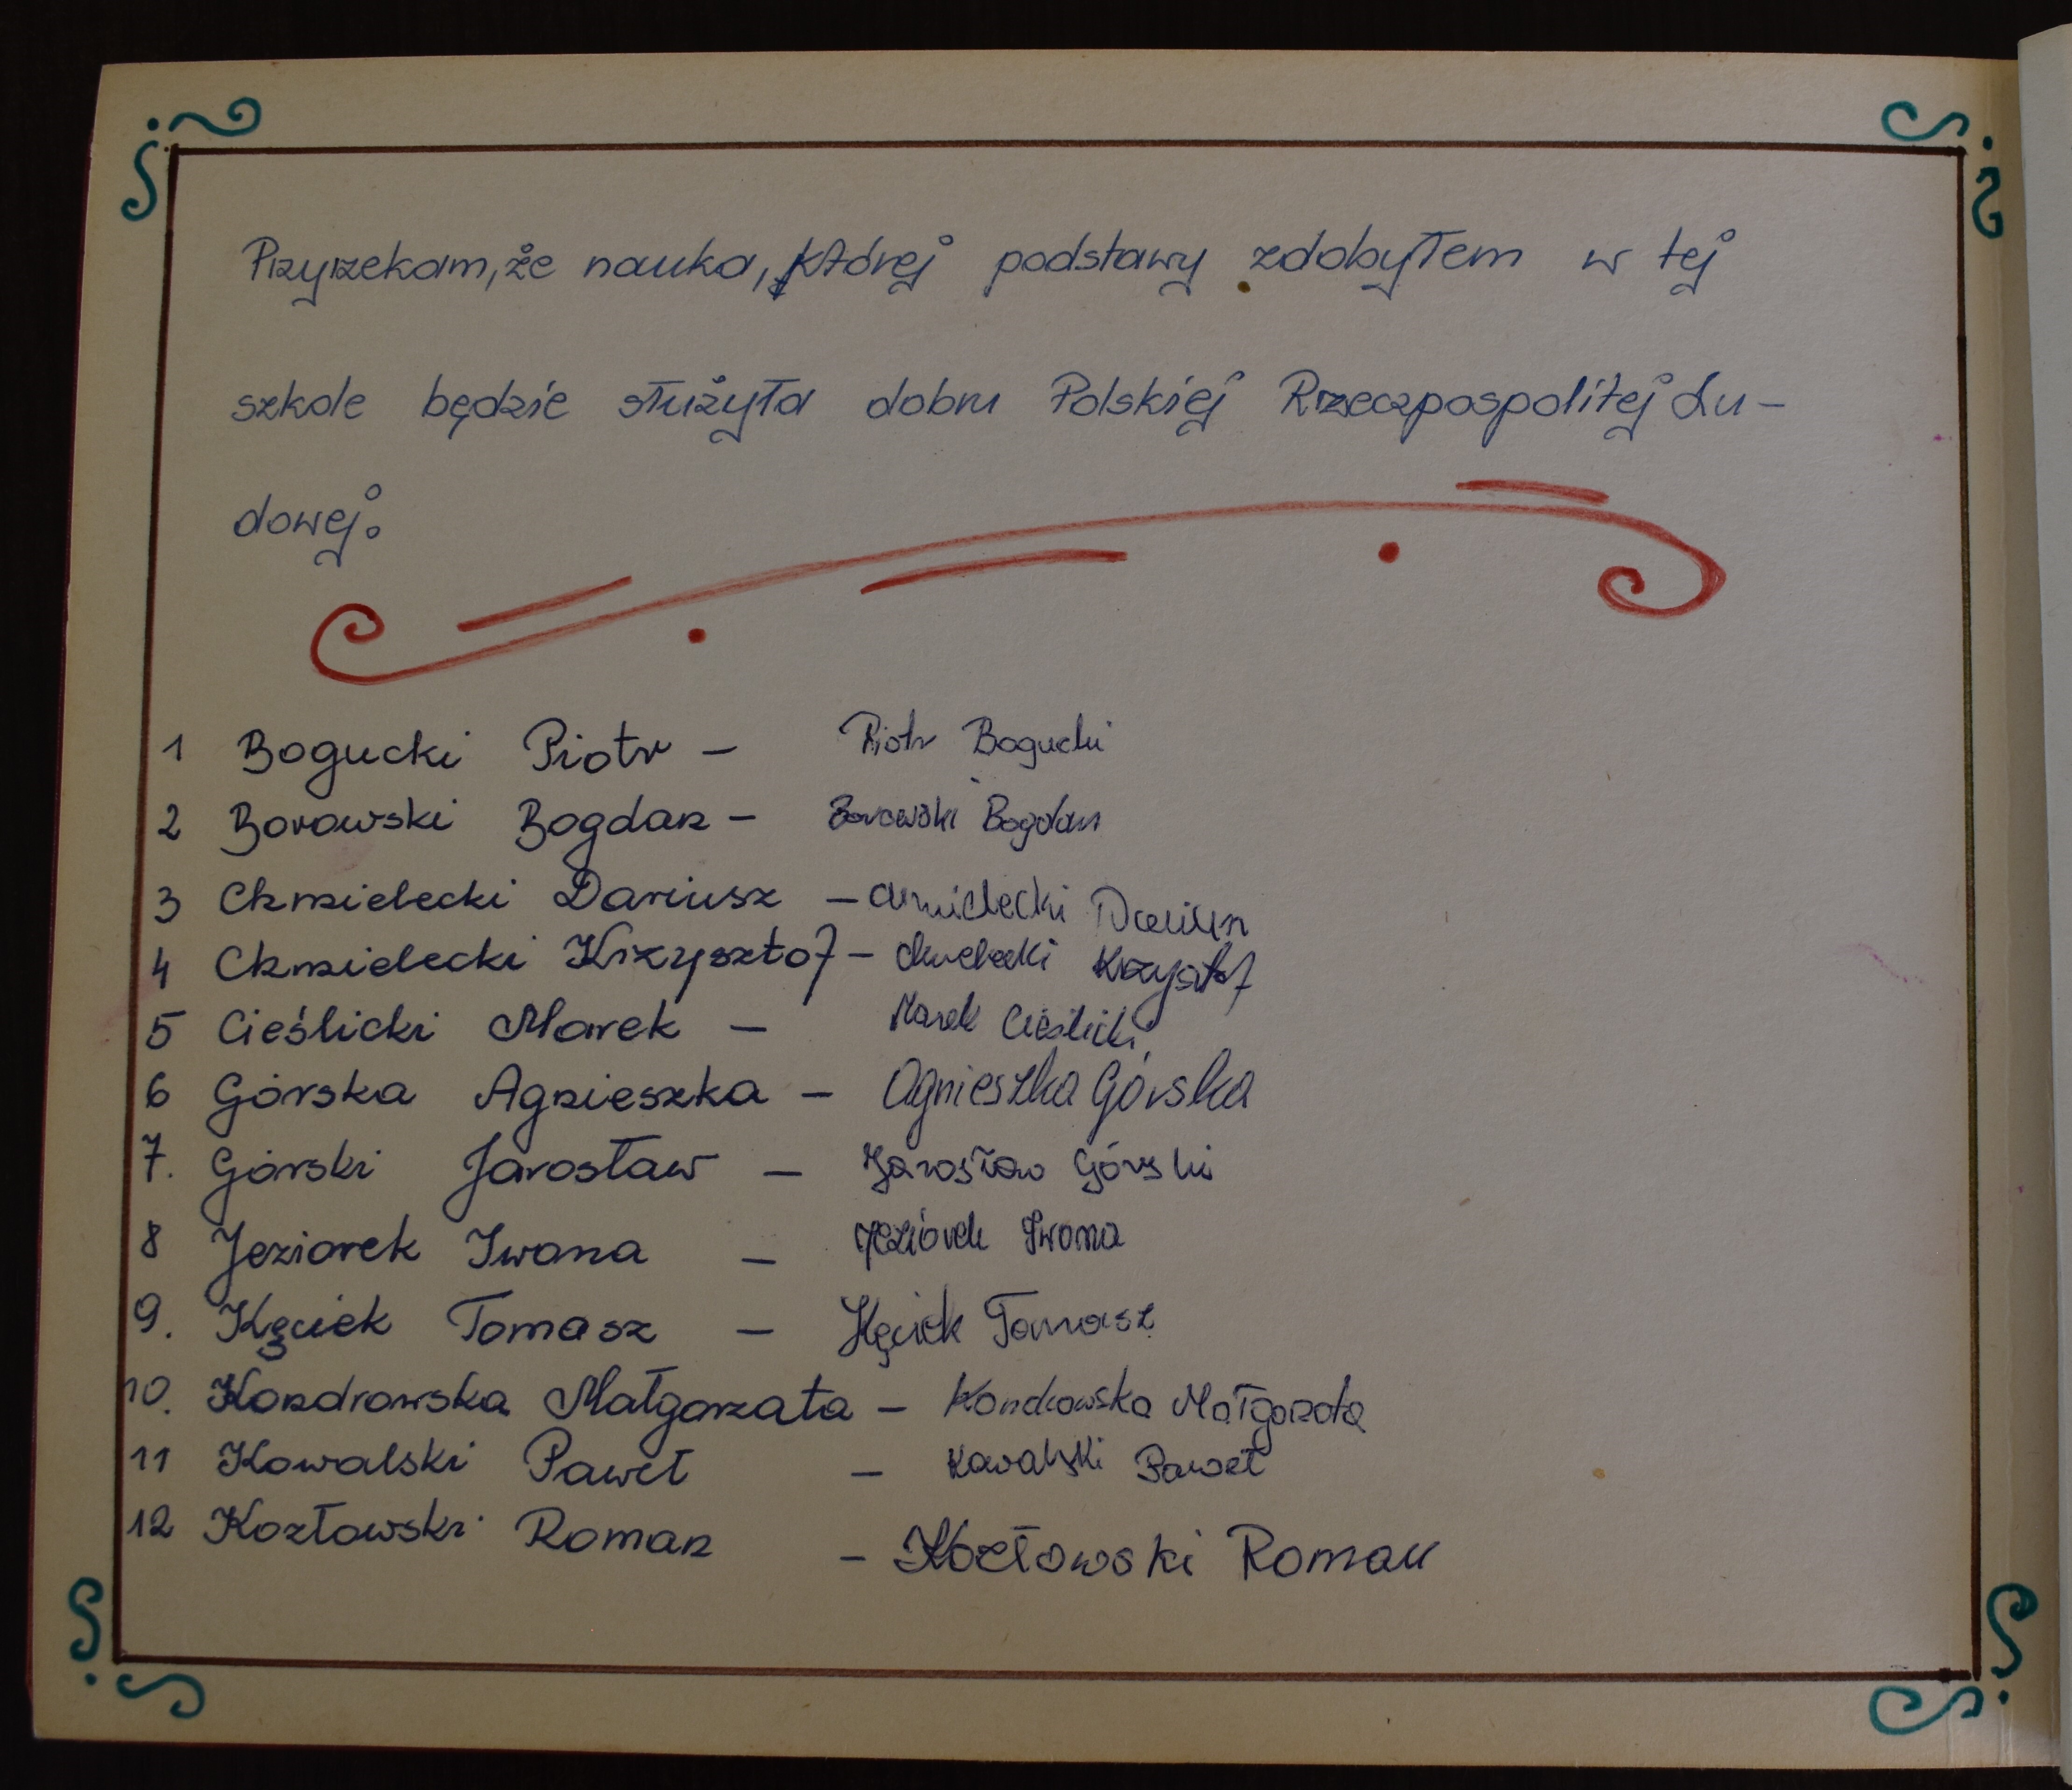 Przyrzekam, że nauka, której podstawy zdobyłem w tej
szkole będzie służyła dobru Polskiej Rzeczpospolitej Lu-
dowej.
1 Bogucki Piotr - Piotr Bogucki
2 Borowski Bogdan - Borowski Bogdan
3 Chmielecki Dariusz - Chmielecki Dariusz
4 Chmielecki Krzysztof - Chmielecki Krzysztof
5 Cieślicki Marek - Marek Cieślicki
6 Górska Agnieszka - Agnieszka Górska
7. Górski Jarosław - Jarosław Górski
8 Jeziorek Iwona - Jeziorek Iwona
9. Kęciek Tomasz - Kęciek Tomasz
10. Kondrowska Małgorzata - Kondrowska Małgorzata
11 Kowalski Paweł - Kowalski Paweł
12 Kozłowski Roman - Kozłowski Roman